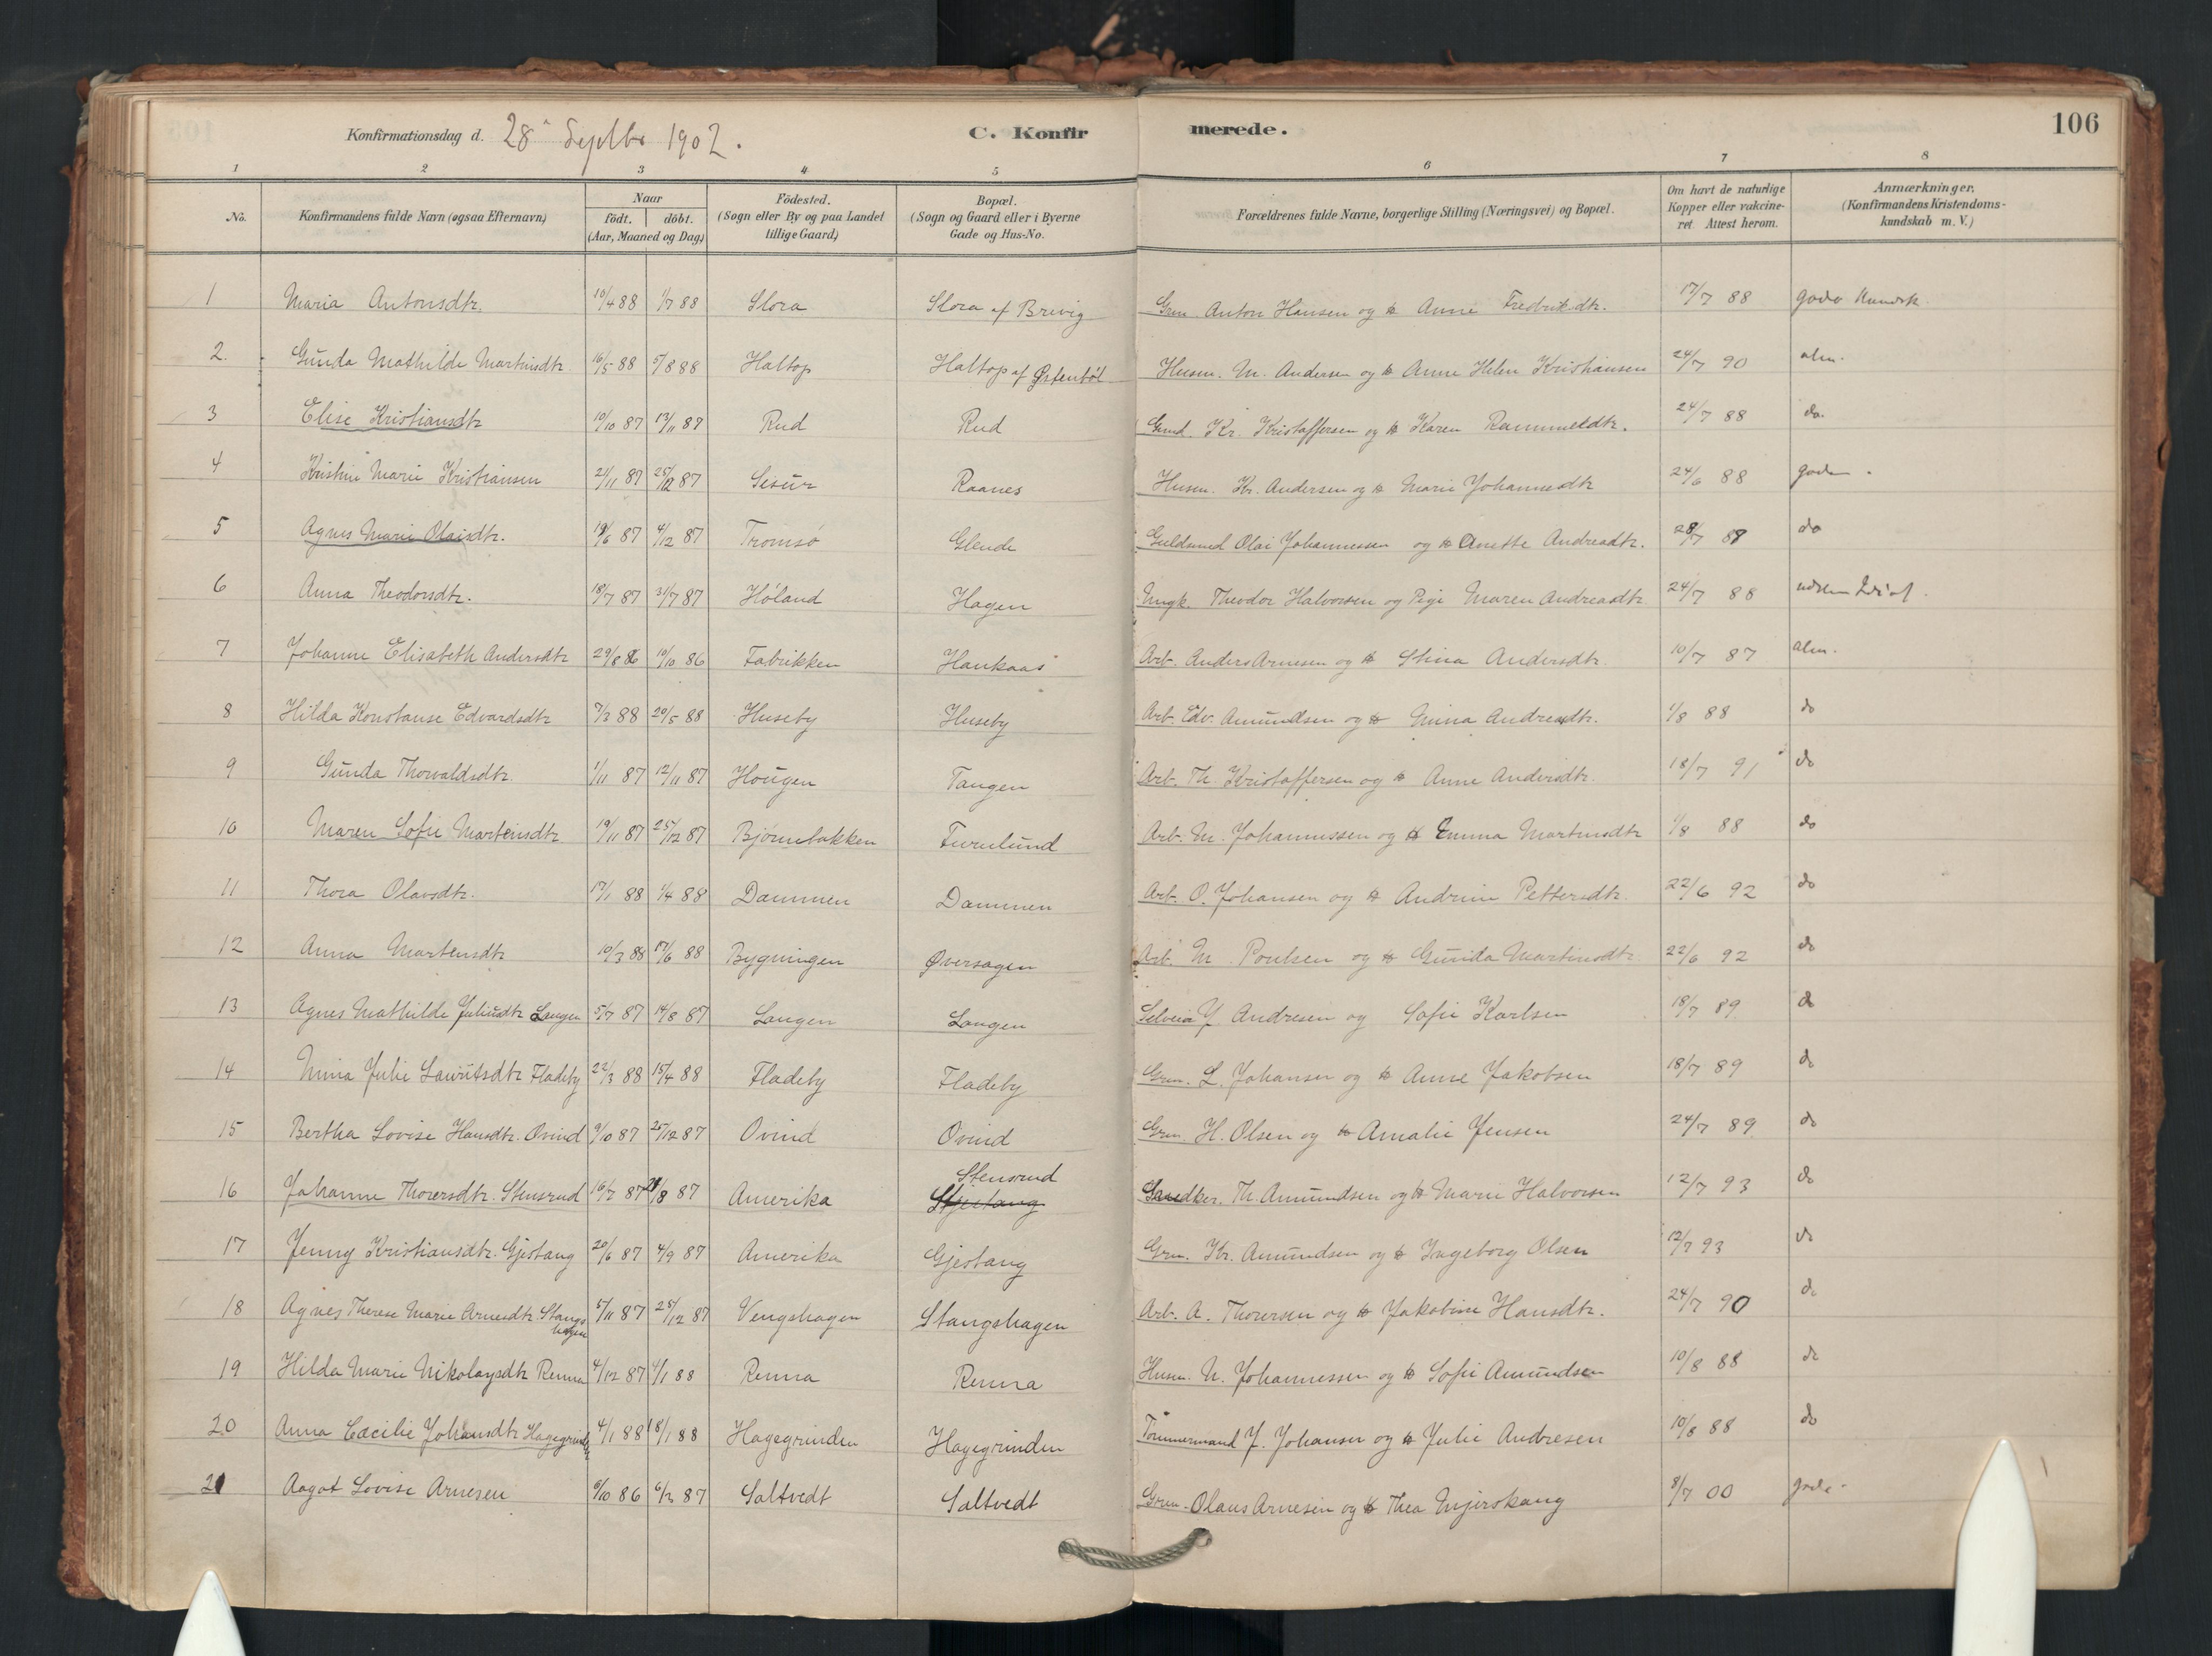 106
Konfirmationsdag d. 28de Septbr 1902.
C. Konfirmerede.
1 2 3 4 5 6 7 8
No.
Konfirmandens fulde Navn (ogsaa Efternavn)
Naar
födt. döbt.
(Aar, Maaned og Dag)
Födested.
(Sogn eller By og paa Landet
tillige Gaard)
Bopæl.
(Sogn og Gaard eller i Byerne
Gade og Hus-No.
Forældrenes fulde Navne, borgerlige Stilling (Næringsvei) og Bopæl.
Om havt de naturlige
Kopper eller vakcine-
ret. Attest herom.
Anmærkninger.
(Konfirmandens Kristendoms-
kundskab m. V.)
1 Maria Antonsdtr. 10/4 88 1/7 88 Slora Slora af Brevig Grm. Anton Hansen og h Anne Fredriksdtr. 17/7 88 gode Kundsk.
2. Gunda Mathilde Martinsdtr. 16/5 88 5/8 88 Haltop Haltop af Østenbøl Husm. M. Andersen og h Anne Helen Kristiansen 24/7 90 alm.
3 Elise Kristiansdtr 10/10 87 13/11 87 Rud Rud Grmd. Kr. Kristoffersen og h Karen 24/7 88 do.
4 Kristine Marie Kristiansen 21/11 87 25/12 87 Raanes Husm. Kr. Andersen og h Marie Johannesdtr 24/6 88 gode
5 Agnes Marie Olaisdtr. 19/6 87 4/12 87 Tromsø Glende Guldsmed Olai Johannessen og h Anette Andreasdtr. 28/7 88 do
6 Anna Theodorsdtr. 18/7 87 31/7 87 Höland Hagen Ungk. Theodor Halvorsen og Pige Maren Andreasdtr. 24/7 88
7 Johanne Elisabeth Andersdtr 29/8 86 10/10 86 Fabrikken Haukaas Arb. Anders Arnesen og h Stina Andersdtr. 10/7 87 alm.
8 Hilda Konstanse Edvardsdtr 7/3 88 20/5 88 Huseby Huseby Arb. Edv. Amundsen og h Mina Andreasdtr. 1/8 88 do
9 Gunda Thorvaldsdtr. 1/11 87 12/11 87 Hougen Tangen Arb. Th. Kristoffersen og h Anne Andersdtr. 18/7 91 do
10 Maren Sofie Martinsdtr 19/11 87 25/12 87 Bjørnebakken Furulund Arb. M. Johannessen og h Emma Martinsdtr 1/8 88 do
11 Thora Olavsdtr. 17/1 88 1/4 88 Dammen Dammen Arb. O. Johansen og h Andrine Pettersdtr. 22/6 92 do
12 Anna Martinsdtr 10/3 88 17/6 88 Bygningen Øversagen Arb. M. Poulsen og h Gunda Martinsdtr. 22/6 92 do
13 Agnes Mathilde Juliusdtr Langen 5/7 87 14/8 87 Langen Langen Selveier J. Andresen og Sofie Karlsen 18/7 89 do
14 Mina Julie Lauritsdtr Fladeby 22/3 88 15/4 88 Fladeby Fladeby Grm. L. Johansen og h Anne Jakobsen 18/7 89 do
15 Bertha Lovise Hansdtr. Ovind 9/10 87 25/12 87 Ovind Ovind Grm. H. Olsen og h Amalie Jensen 24/7 89 do
16 Johanne Thorersdtr. Stensrud 16/7 87 21/8 87 Amerika Stensrud Th. Amundsen og h Marie Halvorsen 12/7 93 do
17 Jenny Kristiansdtr. Gjestang 20/6 87 4/9 87 Amerika Gjestang Grm. Kr. Amundsen og h Ingeborg Olsen 12/7 93 do
18 Agnes Therese Marie Arnesdtr. Stangs
hagen 5/11 87 25/12 87 Vengshagen Stangshagen Arb. A. Thorersen og h Jakobine Hansdtr. 24/7 90 do
19 Hilda Marie Nikolaysdtr Renna 4/12 87 1/1 88 Renna Renna Husm. N. Johannessen og h Sofie Amundsen 10/8 88 do
20 Anna Cæcilie Johansdtr Hagegrinden 4/1 88 18/1 88 Hagegrinden Hagegrinden Tömmermand J. Johansen og h Julie Andresen 10/8 88 do
21 Aagot Lovise Arnesen 6/10 86 6/3 87 Saltvedt Saltvedt Grm. Olaus Arnesen og h Thea Mjerskaug 8/7 00 gode